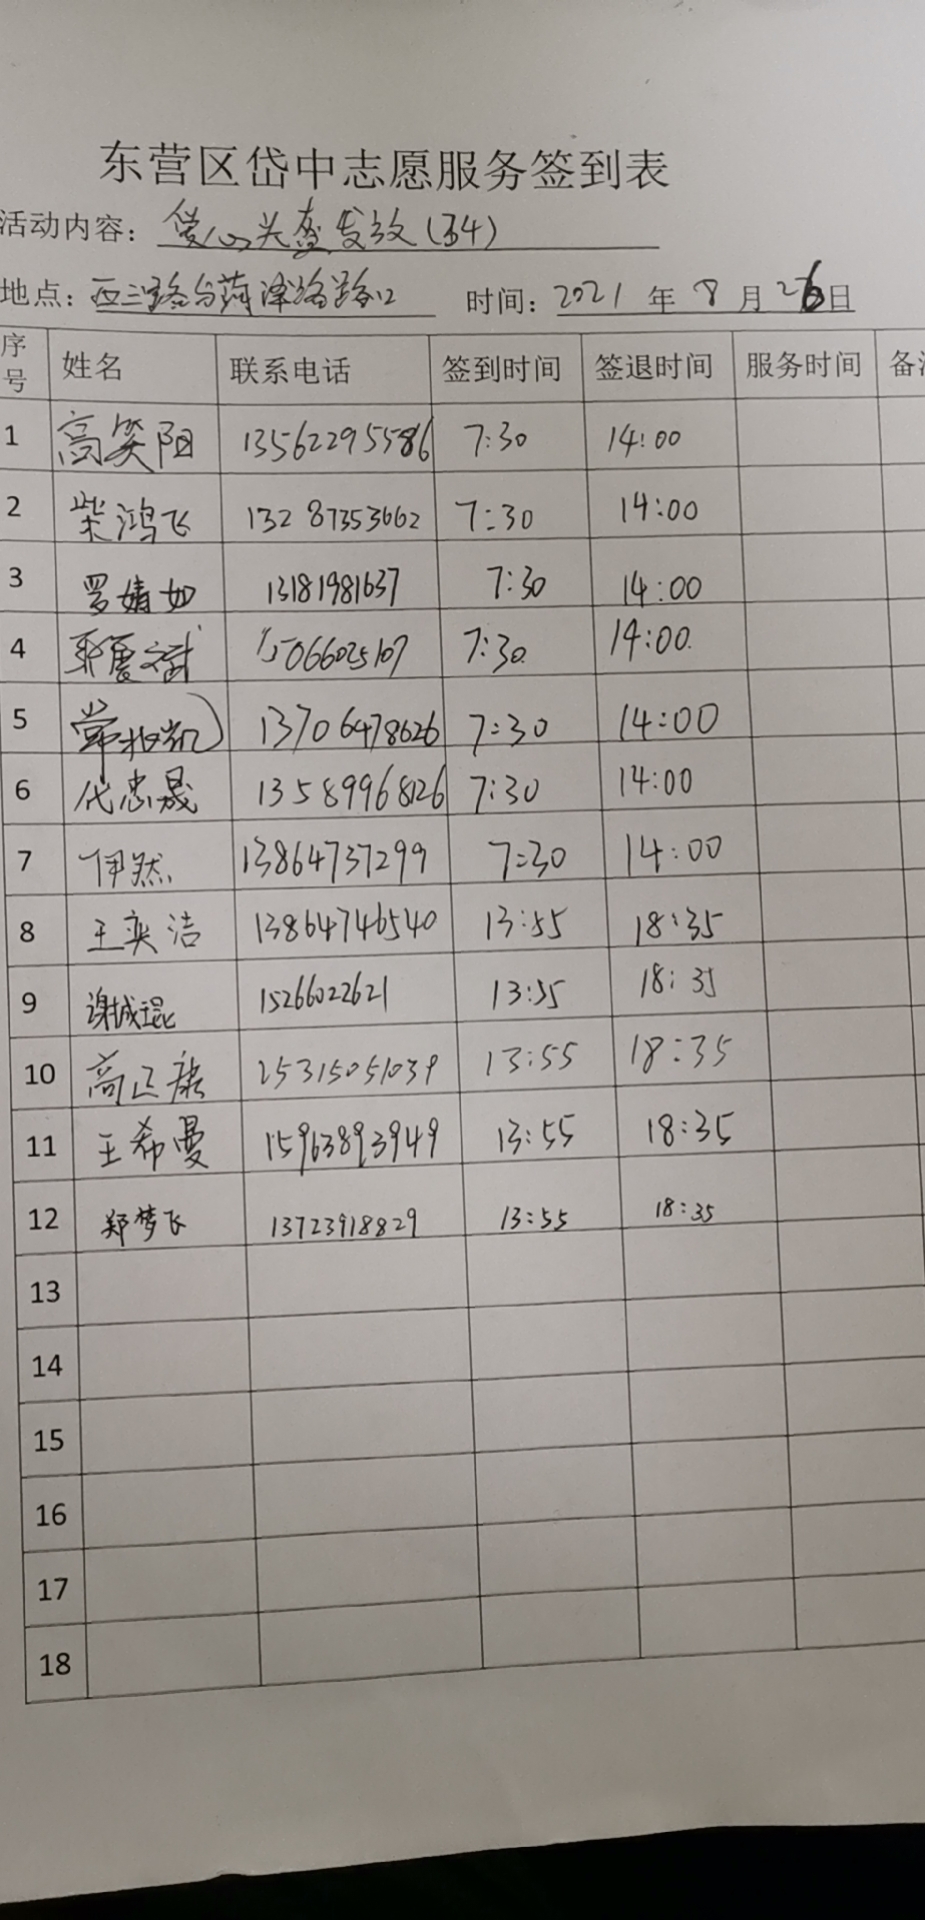 东营区岱中志愿服务签到表
活动内容：爱心头盔发放(34)
地点：西三路与菏泽路路口 时间：2021年8月26日
序号 姓名 联系电话 签到时间 签退时间 服务时间 备注
1 高笑阳 13562295586 7:30 14:00
2 柴鸿飞 13287353662 7:30 14:00
3 罗婧如 13181981637 7:30 14:00
4 15066025107 7:30 14:00
5 13706478626 7:30 14:00
6 代忠晟 13589968126 7:30 14:00
7 伊然 13864737299 7:30 14:00
8 王奕洁 13864746540 13:55 18:35
9 谢城琨 15266022621 13:55 18:35
10 高正康 25315051039 13:55 18:35
11 王希曼 15963893949 13:55 18:35
12 郑梦飞 13723918829 13:55 18:35
13
14
15
16
17
18